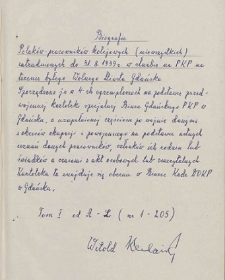 Biografie
Polaków-pracowników kolejowych (niewszystkich)
zatrudnionych do 31.8.1939 r. w służbie na PKP na
terenie byłego Wolnego Miasta Gdańska
Sporządzono ja w 4-ch egzemplarzach na podstawie przed-
wojennej kartoteki specjalnej Biura Gdańskiego PKP w
Gdańsku, a uzupełnionej częściowo po wojnie danymi
z okresu okupacji i powojennego na podstawie
zeznań danych pracowników, członków ich rodzin lub
świadków a czasami z akt osobowych lub
Kartoteka ta znajduje się obecnie w Biurze Kadr DOKP
w Gdańsku.
Tom I od A - Z (nr 1 - 205)
Witold